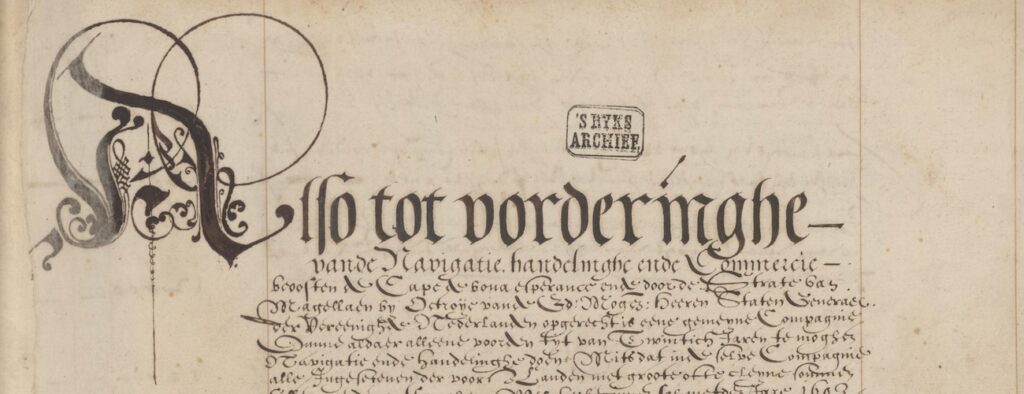 'S RYKS
ARCHIEF.
Also tot vorderinghe
vande Navigatie. handelinghe ende Commercie
beoosten de Cape de bona esperance ende door de Strate van
Magellaen by Octroye vande Ed: Mog: Heeren Staten Generael
der Vereenighde Nederlanden opgerecht is eene gemeyne Compagnie
omme aldaer alleene voorden tyt van Twintich Jaren te mogen
Navigatie ende handelinghe doen. Mits dat inde selve Compagnie
alle Ingesetenen der voors Landen met groote ofte cleyne sommen